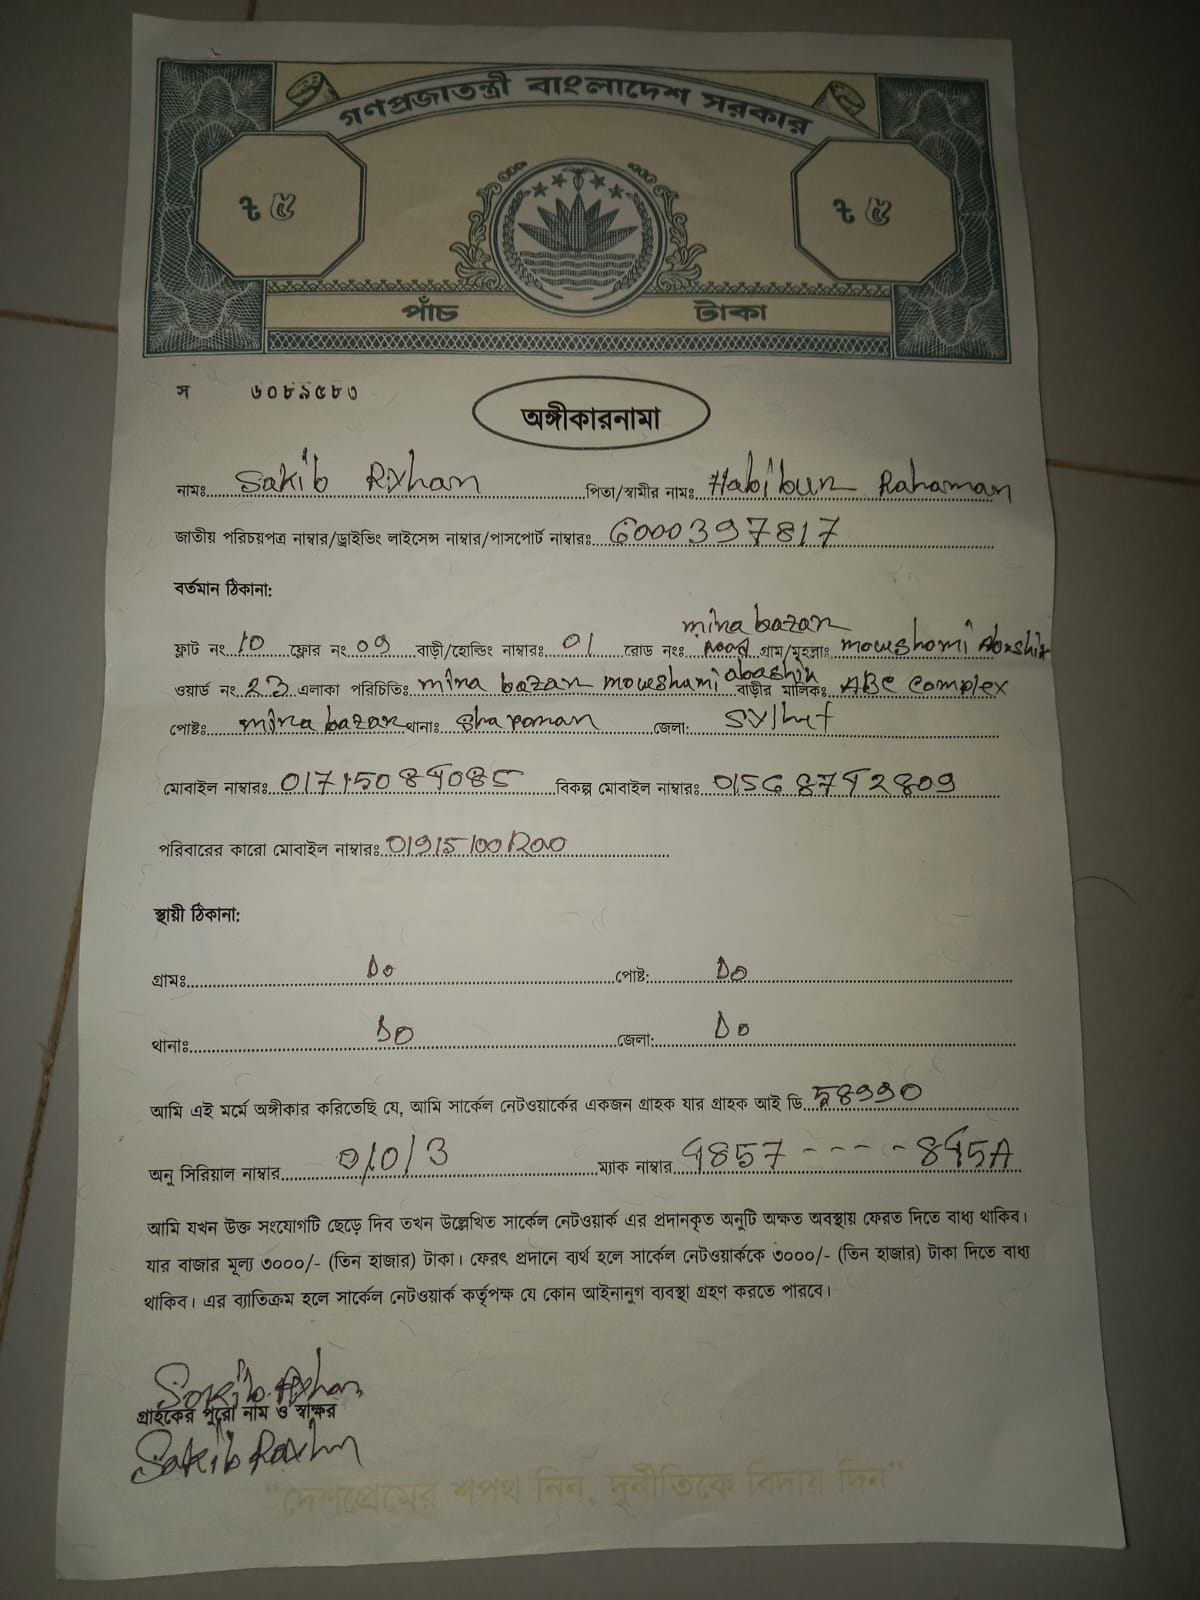 গণপ্রজাতন্ত্রী বাংলাদেশ সরকার
৳ ৫ ৳ ৫
পাঁচ টাকা
স ৬০৮৯৫৮৩
অঙ্গীকারনামা
নামঃ Sakib Rxhan পিতা/স্বামীর নামঃ Habibur Rahaman
জাতীয় পরিচয়পত্র নাম্বার/ড্রাইভিং লাইসেন্স নাম্বার/পাসপোর্ট নাম্বারঃ 6000397817
বর্তমান ঠিকানা:
mira bazar
ফ্লাট নং 10 ফ্লোর নং 09 বাড়ী/হোল্ডিং নাম্বারঃ 01 রোড নংঃ Road গ্রাম/মহল্লাঃ moushami
ওয়ার্ড নং 23 এলাকা পরিচিতিঃ mira bazar moushami abashik বাড়ীর মালিকঃ ABC Complex
পোষ্টঃ mira bazar থানাঃ Sha poran জেলা: Sylhet
মোবাইল নাম্বারঃ 01715084085 বিকল্প মোবাইল নাম্বারঃ
পরিবারের কারো মোবাইল নাম্বারঃ 019151001200
স্থায়ী ঠিকানা:
গ্রামঃ Do পোষ্ট: Do
থানাঃ Do জেলা: Do
আমি এই মর্মে অঙ্গীকার করিতেছি যে, আমি সার্কেল নেটওয়ার্কের একজন গ্রাহক যার গ্রাহক আই ডি
অনু সিরিয়াল নাম্বার ম্যাক নাম্বার 4857 - - - - 845A
আমি যখন উক্ত সংযোগটি ছেড়ে দিব তখন উল্লেখিত সার্কেল নেটওয়ার্ক এর প্রদানকৃত অনুটি অক্ষত অবস্থায় ফেরত দিতে বাধ্য থাকিব।
যার বাজার মূল্য ৩০০০/- (তিন হাজার) টাকা। ফেরৎ প্রদানে ব্যর্থ হলে সার্কেল নেটওয়ার্ককে ৩০০০/- (তিন হাজার) টাকা দিতে বাধ্য
থাকিব। এর ব্যাতিক্রম হলে সার্কেল নেটওয়ার্ক কর্তৃপক্ষ যে কোন আইনানুগ ব্যবস্থা গ্রহণ করতে পারবে।
Sakib Rxhan
গ্রাহকের পুরো নাম ও স্বাক্ষর
Sakib
"দেশপ্রেমের শপথ নিন, দুর্নীতিকে বিদায় দিন"